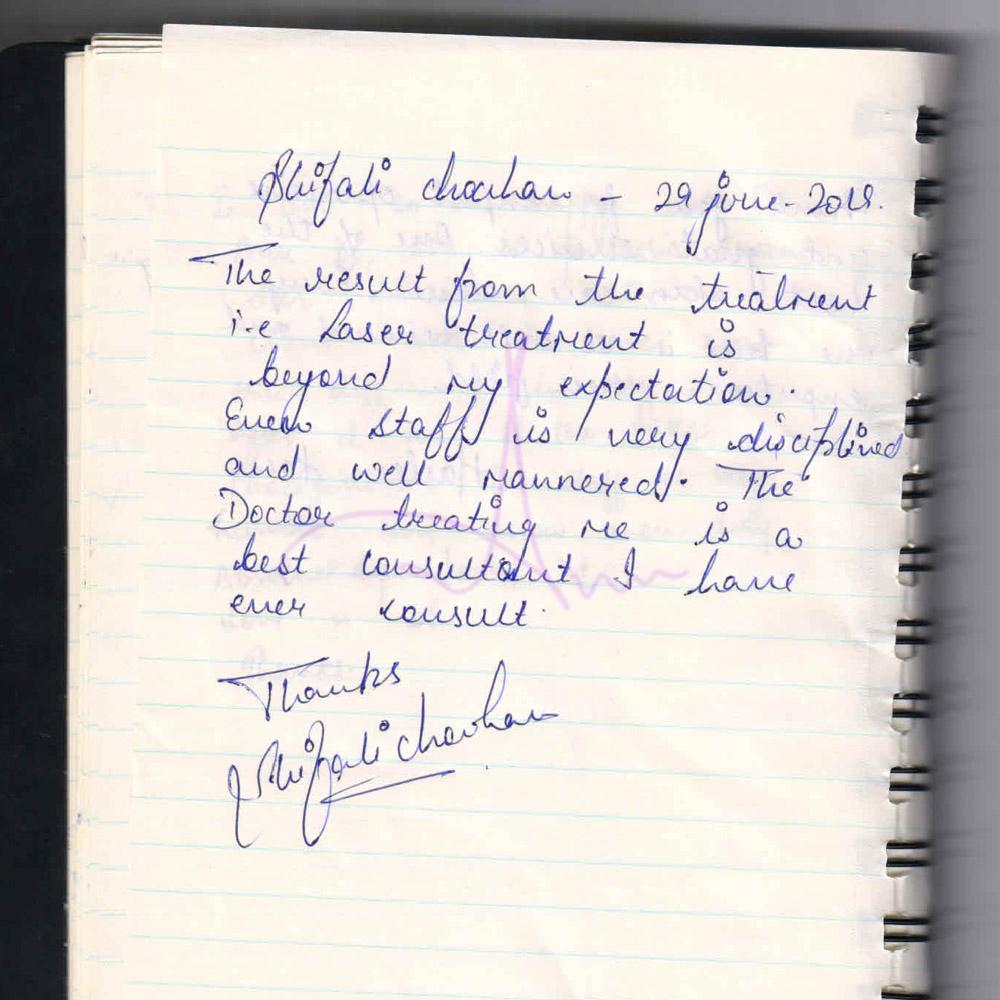 Shifali chauhan - 29 june-2018.
The result from the treatment
i.e Laser treatment is
beyond my expectation.
Even staff is very disciplined
and well mannered. The
Doctor treating me is a
best consultant I have
ever consult.
Thanks
Shifali chauhan